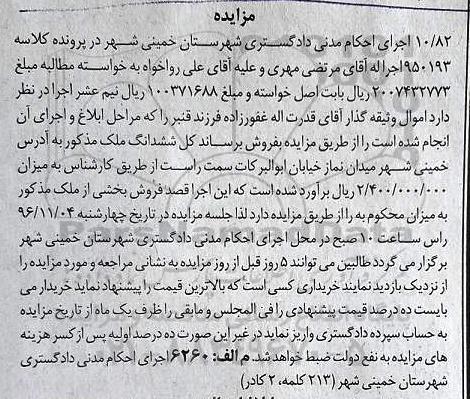 مزایده
۱۰/۸۲ اجرای احکام مدنی دادگستری شهرستان خمینی شهر در پرونده کلاسه
۹۵۰۱۹۳اجرا له آقای مرتضی مهری و علیه آقای علی رواخواه به خواسته مطالبه مبلغ
۲۰۰۷۴۳۲۷۷۳ ریال بابت اصل خواسته و مبلغ ۱۰۰۳۷۱۶۸۸ ریال نیم عشر اجرا در نظر
دارد اموال وثیقه گذار آقای قدرت اله غفورزاده فرزند قنبر را که مراحل ابلاغ و اجرای آن
انجام شده است را از طریق مزایده بفروش برساند کل ششدانگ ملک مذکور به آدرس
خمینی شهر میدان نماز خیابان ابوالبرکات سمت راست از طریق کارشناس به میزان
۲/۴۰۰/۰۰۰/۰۰۰ ریال برآورد شده است که این اجرا قصد فروش بخشی از ملک مذکور
به میزان محکوم به را از طریق مزایده دارد لذا جلسه مزایده در تاریخ چهارشنبه ۹۶/۱۱/۰۴
راس ساعت ۱۰ صبح در محل اجرای احکام مدنی دادگستری شهرستان خمینی شهر
برگزار می گردد طالبین می توانند ۵ روز قبل از روز مزایده به نشانی مراجعه و مورد مزایده را
از نزدیک بازدید نمایند خریداری کسی است که بالاترین قیمت را پیشنهاد نماید خریدار می
بایست ده درصد قیمت پیشنهادی را فی المجلس و مابقی را ظرف یک ماه از تاریخ مزایده
به حساب سپرده دادگستری واریز نماید در غیر این صورت ده درصد اولیه پس از کسر هزینه
های مزایده به نفع دولت ضبط خواهد شد. م الف: ۶۲۶۰ اجرای احکام مدنی دادگستری
شهرستان خمینی شهر (۲۱۳ کلمه، ۲ کادر)